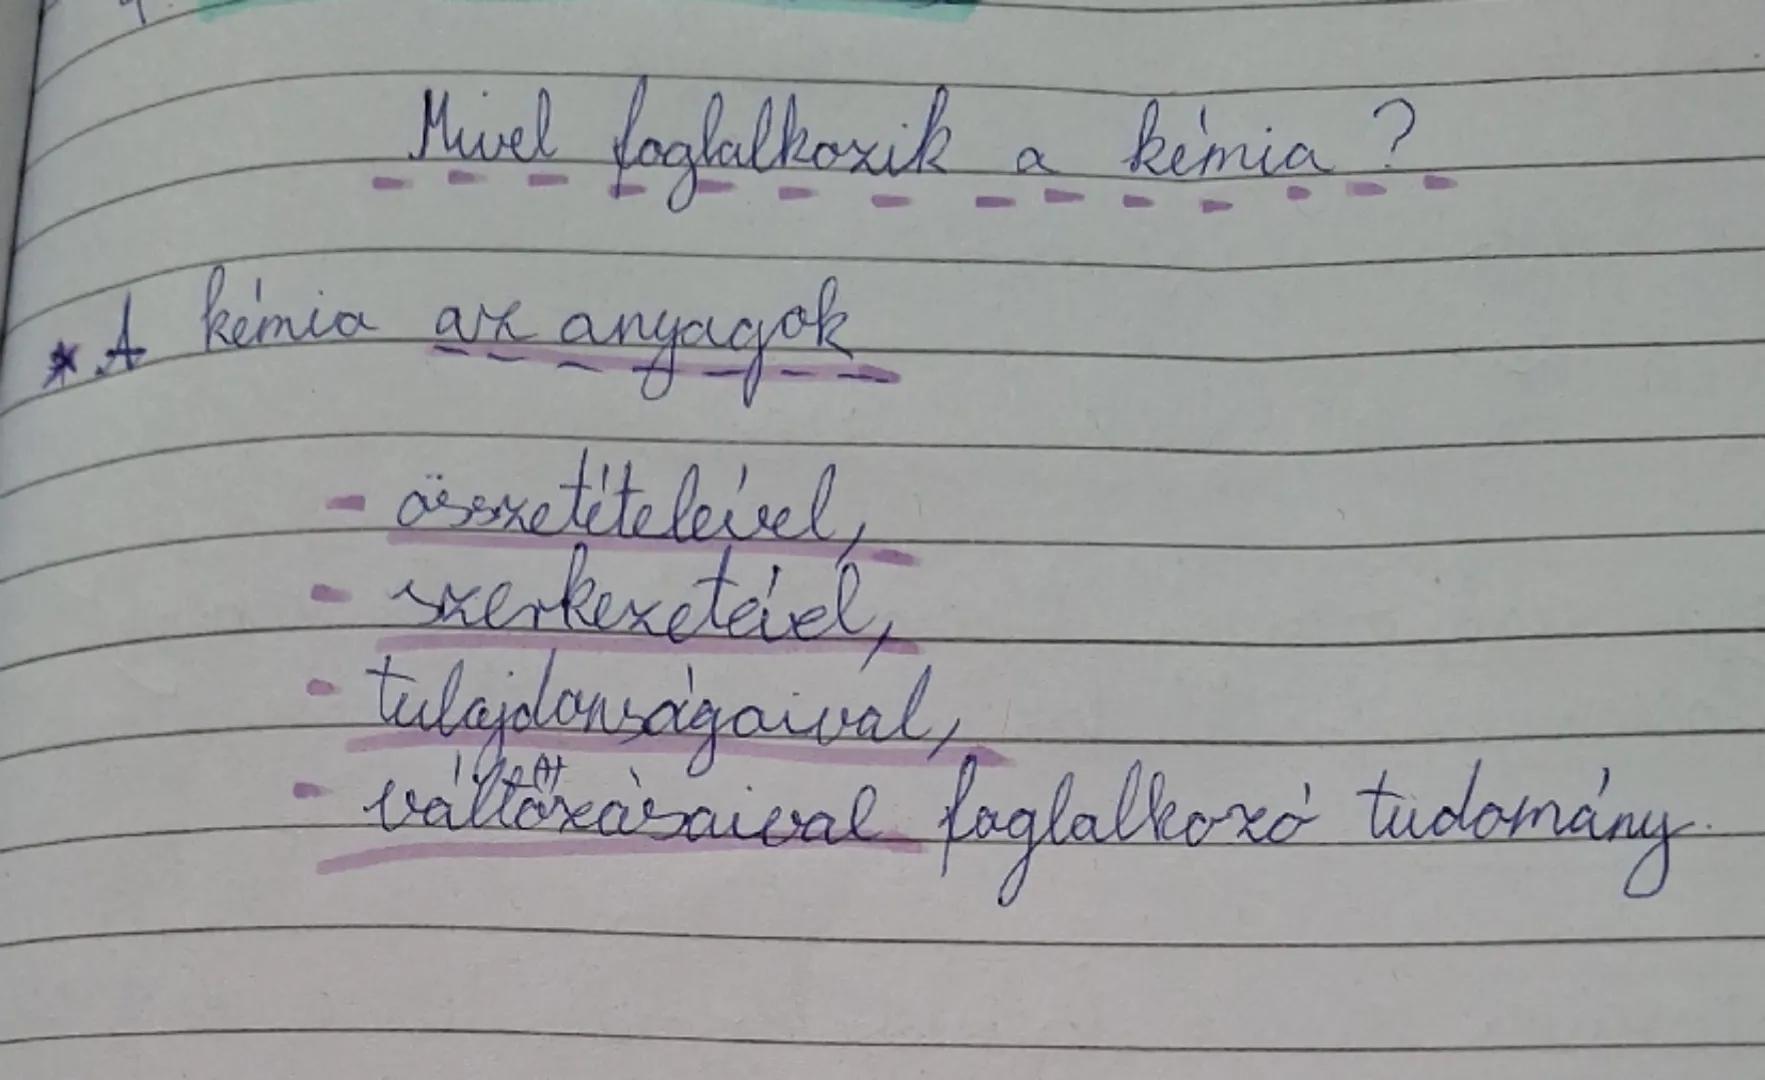 Mivel foglalkozik a kémia?
* A kémia az anyagok
- összetételeivel,
- szerkezeteivel,
- tulajdonságaival,
- változásaival foglalkozó tudomány.